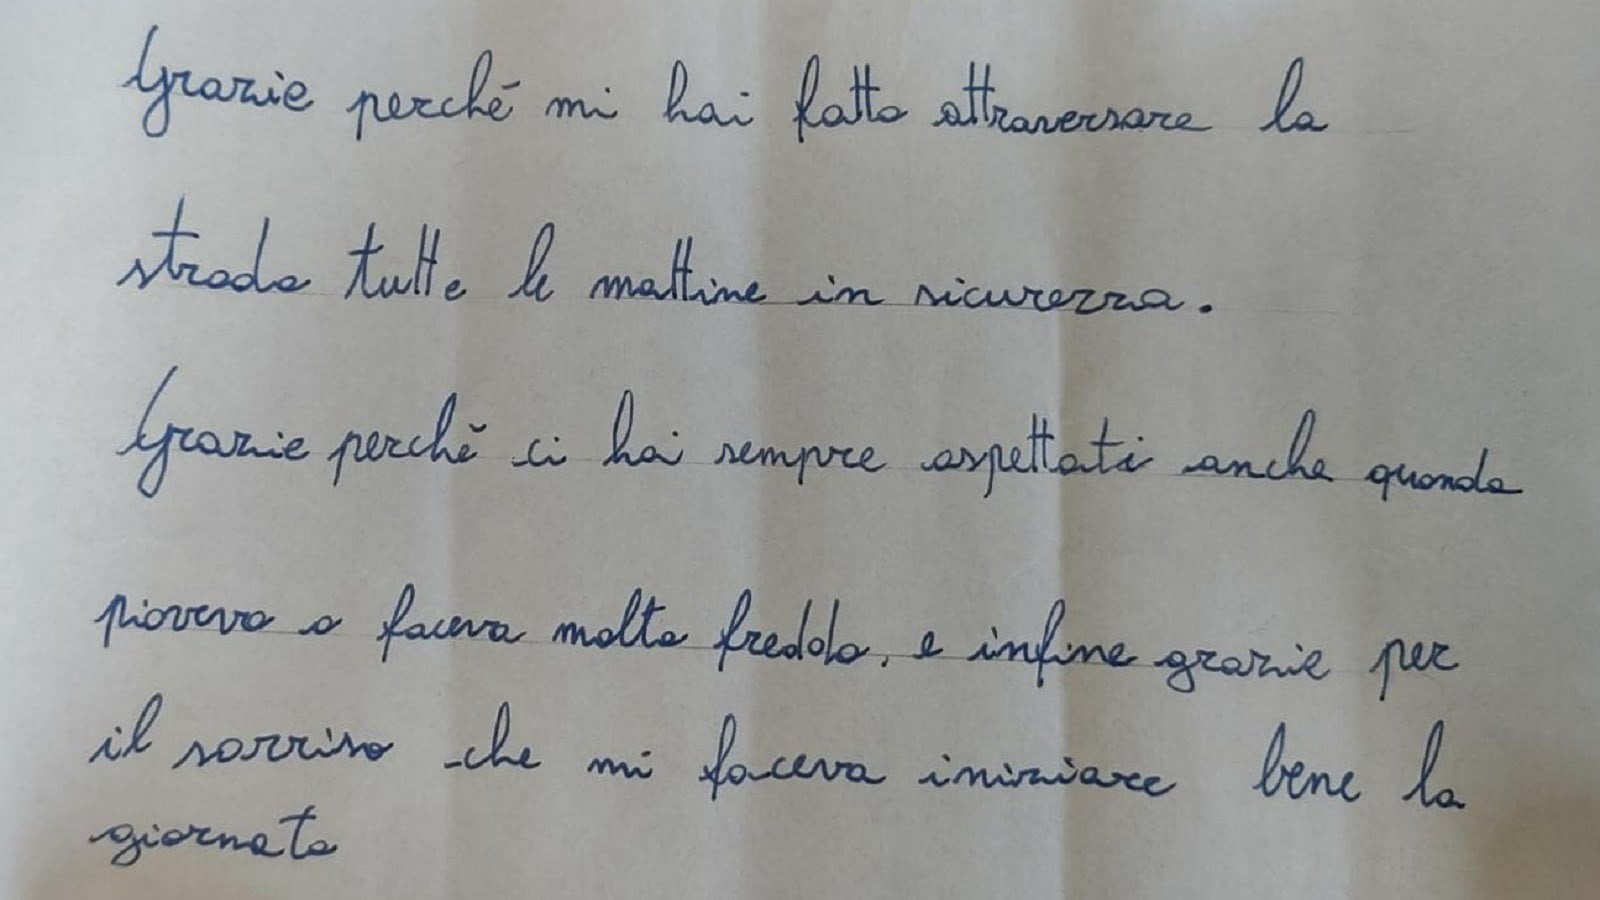 Grazie perché mi hai fatto attraversare la
strada tutte le mattine in sicurezza.
Grazie perchè ci hai sempre aspettati anche quando
pioveva o faceva molto freddo, e infine grazie per
il sorriso che mi faceva iniziare bene la
giornata